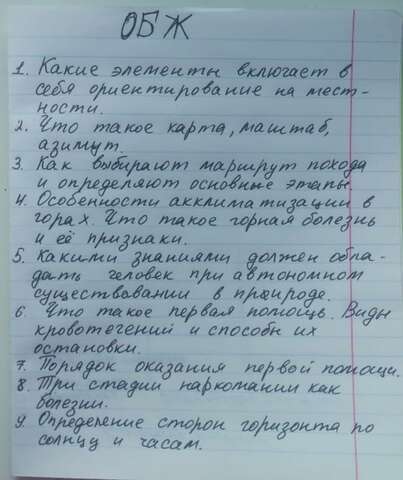 ОБЖ
1. Какие элементы включает в
себя ориентирование на мест-
ности.
2. Что такое карта, масштаб,
азимут.
3. Как выбирают маршрут похода
и определяют основные этапы.
4. Особенности акклиматизации в
горах. Что такое горная болезнь
и её признаки.
5. Какими знаниями должен обла-
дать человек при автономном
существовании в природе.
6. Что такое первая помощь. Виды
кровотечений и способы их
остановки.
7. Порядок оказания первой помощи.
8. Три стадии наркомании как
болезни.
9. Определение сторон горизонта по
солнцу и часам.